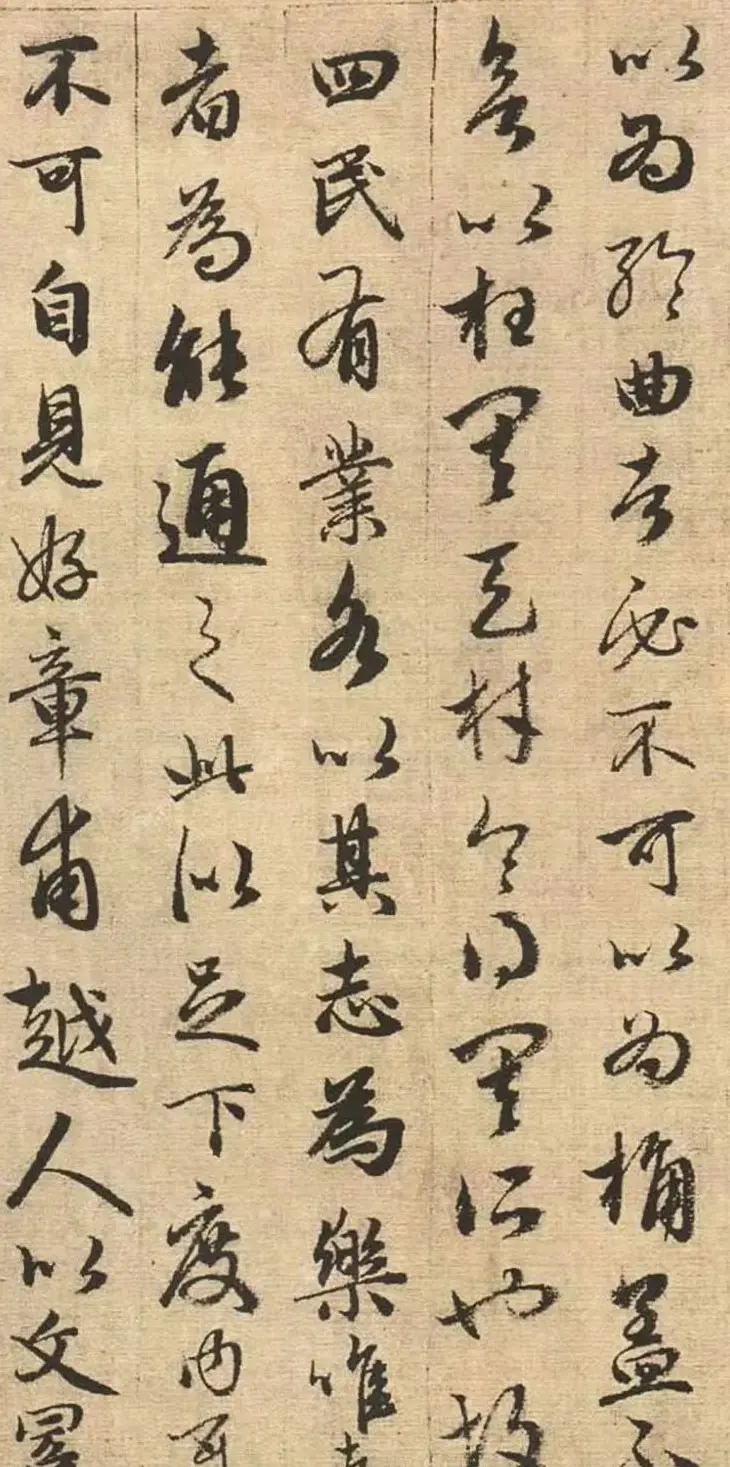 以為輪曲者必不可以為桷盖不
以枉其天材令得其所也故
四民有業各以其志為樂唯
者為能通之此似足下度内耳
不可自見好章甫越人以文冕